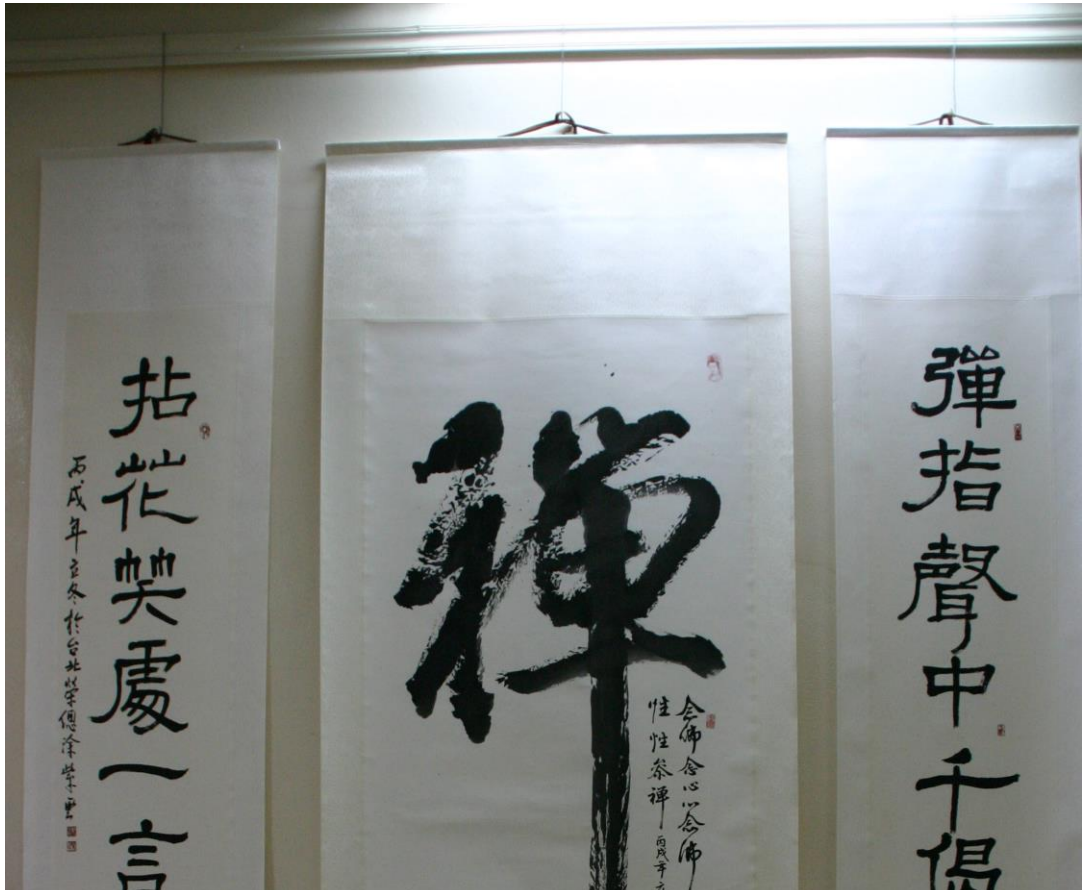 彈指聲中千偈
禪
念佛念心心念佛
性性參禪 丙戌年立
拈花笑處一言
丙戌年立冬於台北榮總涂榮雲